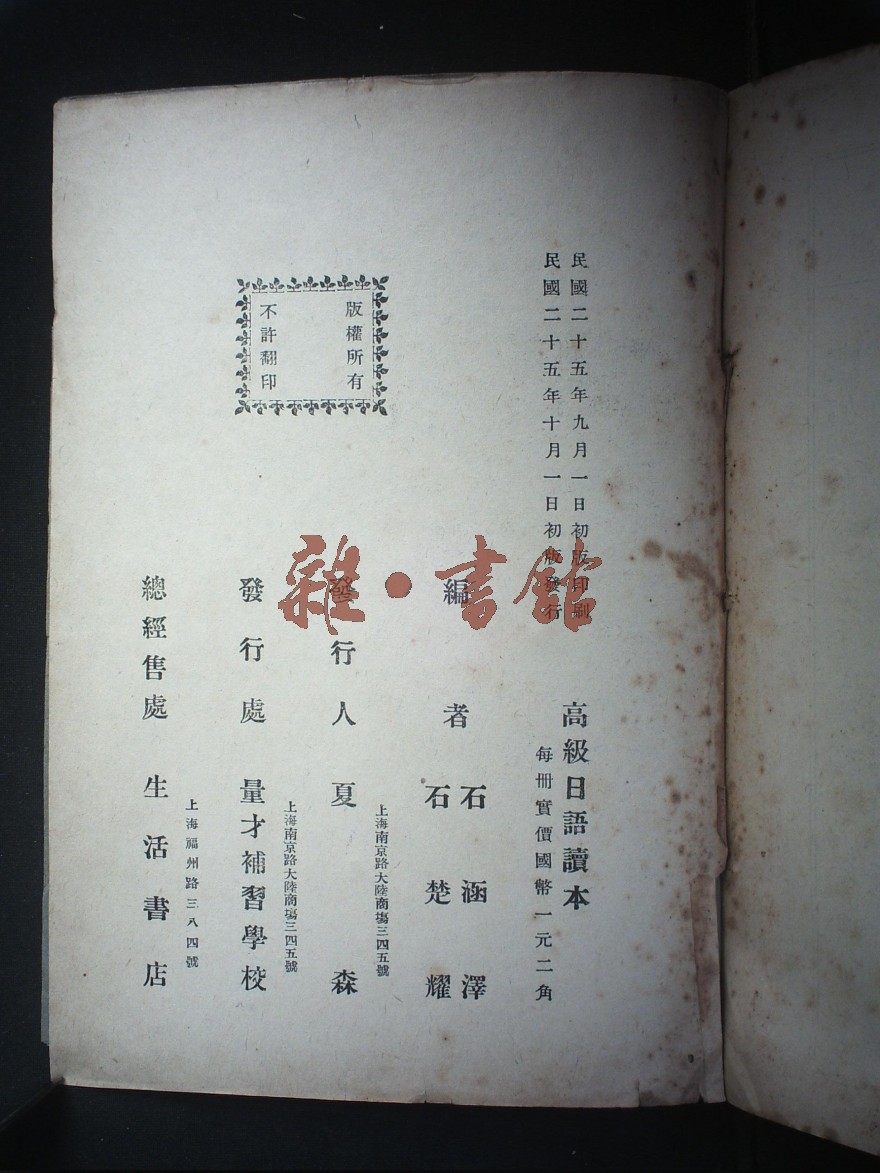 民國二十五年九月一日初版印刷
民國二十五年十月一日初版發行
高級日語讀本
每冊實價國幣一元二角
編者
石涵澤
石楚耀
上海南京路大陸商塲三四五號
發行人 夏森
上海南京路大陸商塲三四五號
發行處 量才補習學校
上海福州路三八四號
總經售處 生活書店
版權所有
不許翻印
雜·書館